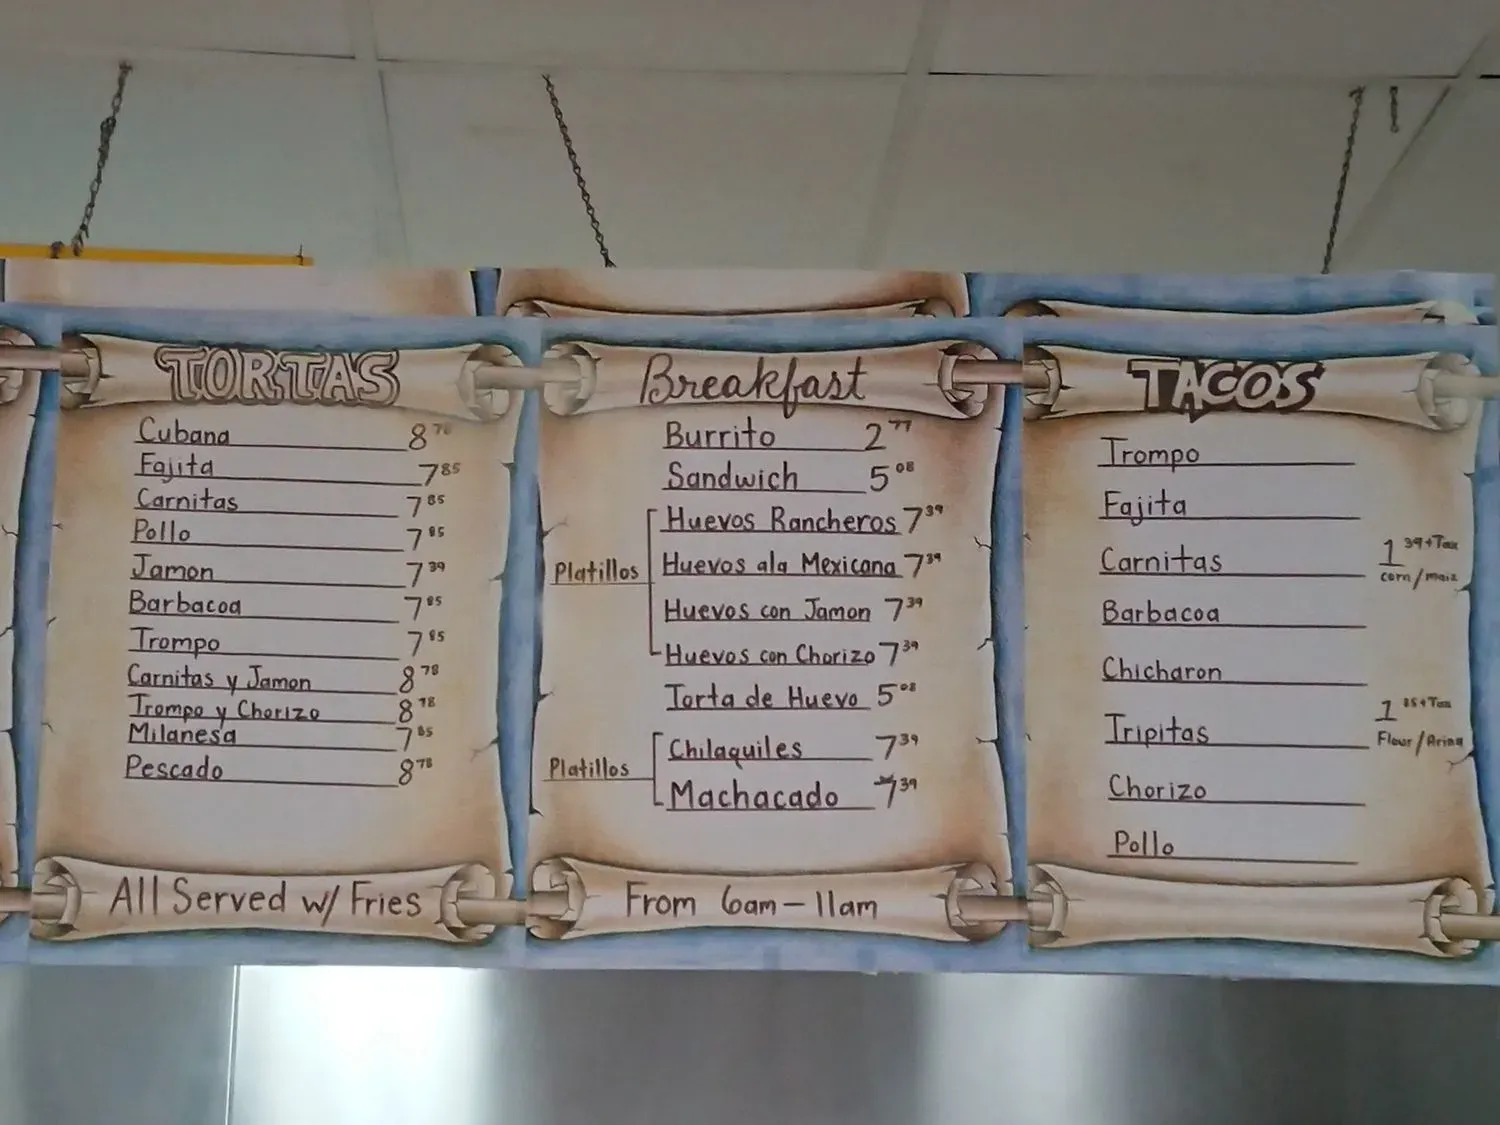 TORTAS
Cubana 8 78
Fajita 7 85
Carnitas 7 85
Pollo 7 85
Jamon 7 39
Barbacoa 7 85
Trompo 7 85
Carnitas y Jamon 8 78
Trompo y Chorizo 8 78
Milanesa 7 85
Pescado 8 78
All Served w/ Fries
Breakfast
Burrito 2 77
Sandwich 5 08
Platillos
Huevos Rancheros 7 39
Huevos ala Mexicana 7 39
Huevos con Jamon 7 39
Huevos con Chorizo 7 39
Torta de Huevo 5 08
Platillos
Chilaquiles 7 39
Machacado 7 39
From 6am – 11am
TACOS
Trompo
Fajita
Carnitas
Barbacoa
Chicharon
Tripitas
Chorizo
Pollo
1 39+Tax
corn/maiz
1 85+Tax
Flour/Arina